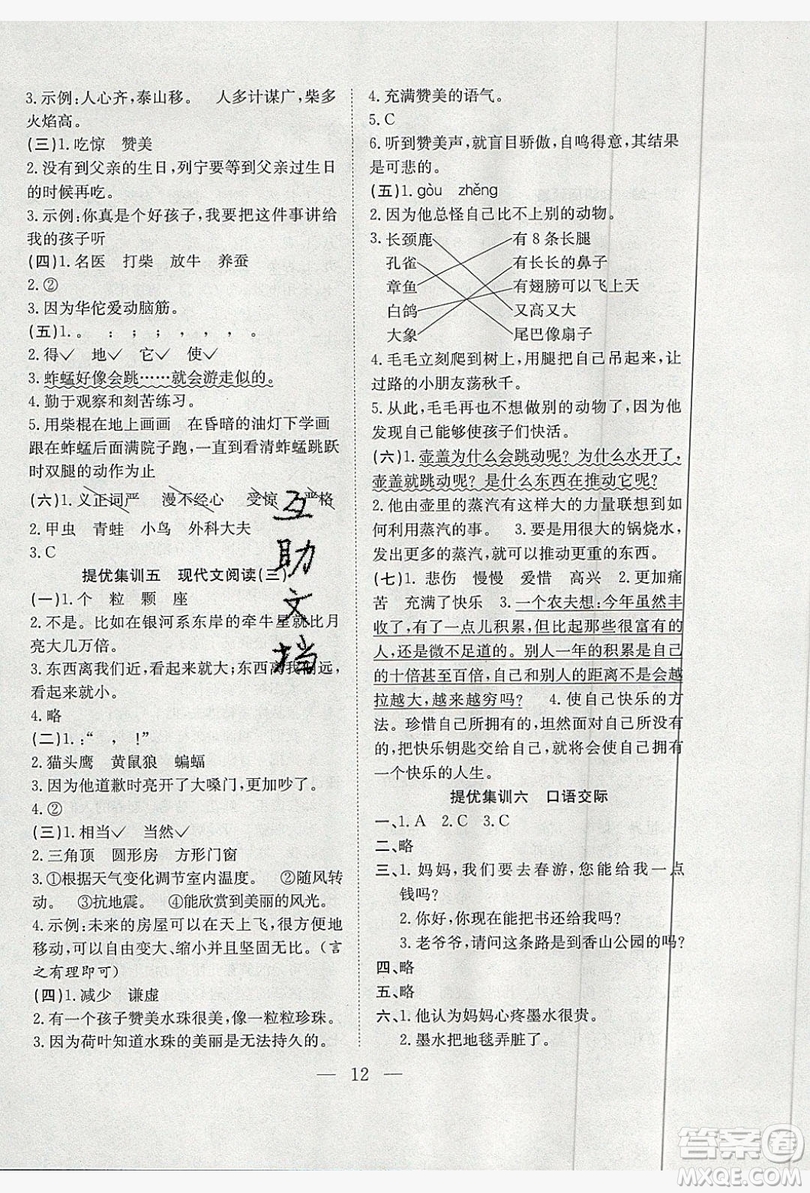 3. 示例:人心齐,泰山移。 人多计谋广,柴多
火焰高。
(三)1. 吃惊 赞美
2. 没有到父亲的生日,列宁要等到父亲过生日
的时候再吃。
3. 示例:你真是个好孩子,我要把这件事讲给
我的孩子听
(四)1. 名医 打柴 放牛 养蚕
2. ②
3. 因为华佗爱动脑筋。
(五)1. 。 ; ; , , 。
2. 得✓ 地✓ 它✓ 使✓
3. 蚱蜢好像会跳……就会游走似的。
4. 勤于观察和刻苦练习。
5. 用柴棍在地上画画 在昏暗的油灯下学画
跟在蚱蜢后面满院子跑,一直到看清蚱蜢跳跃
时双腿的动作为止
(六)1. 义正词严 漫不经心 受惊 严格
2. 甲虫 青蛙 小鸟 外科大夫
3. C
提优集训五 现代文阅读(三)
(一)1. 个 粒 颗 座
2. 不是。比如在银河系东岸的牵牛星就比月
亮大几万倍。
3. 东西离我们近,看起来就大;东西离我们远,
看起来就小。
4. 略
(二)1. :“ , !”
2. 猫头鹰 黄鼠狼 蝙蝠
3. 因为他道歉时亮开了大嗓门,破坏了安宁。
4. ②
(三)1. 相当✓ 当然✓
2. 三角顶 圆形房 方形门窗
3. ①根据天气变化调节室内温度。 ②随风转
动。 ③抗地震。 ④能欣赏到美丽的风光。
4. 示例:未来的房屋可以在天上飞,很方便地
移动,可以自由变大、缩小并且更加坚固。(言
之有理即可)
(四)1. 减少 谦虚
2. 有一个孩子赞美水珠很美,像一粒粒珍珠。
3. 因为荷叶知道水珠的美丽是无法持久的。
4. 充满赞美的语气。
5. C
6. 听到赞美声,就盲目骄傲,自鸣得意,其结果
是可悲的。
(五)1. gòu zhěng
2. 因为他总怪自己比不上别的动物。
3. 长颈鹿 有 8 条长腿
孔雀 有长长的鼻子
章鱼 有翅膀可以飞上天
白鸽 又高又大
大象 尾巴像扇子
4. 毛毛立刻爬到树上,用腿把自己吊起来,让
过路的小朋友荡秋千。
5. 从此,毛毛再也不想做别的动物了,因为他
能够使孩子们快活。
(六)1. 壶盖为什么会跳动呢?为什么水开了,
壶盖就跳动呢?是什么东西在推动它呢?
2. 他由壶里的蒸汽有这样大的力量联想到如
何利用蒸汽的事。 3. 要是用更多的锅烧水,
烧出更多的蒸汽,就可以推动更重的东西。
(七)1. 悲伤 慢慢 爱惜 高兴 2. 因为痛
苦 充满了快乐 3. 一个农夫想:今年虽然丰
收了,有了一点儿积累,但比起那些很富有的
人,还是微不足道的。别人一年的积累是自己
的十倍甚至百倍,自己和别人的距离不是会越
拉越大,越来越穷吗? 4. 使自己快乐的方
法。珍惜自己所拥有的,坦然面对自己没有
的,把快乐钥匙交给自己,就将会使自己拥有
一个快乐的人生。
提优集训六 口语交际
一、1. A 2. C 3. C
二、略
三、1. 妈妈,我们要去春游,您能给我一点
钱吗?
2. 你好,你现在能把书还给我吗?
3. 老爷爷,请问这条路是到香山公园的吗?
四、略
五、略
六、1. 他认为妈妈心疼墨水很贵。
2. 墨水把地毯弄脏了。
互助文档
— 12 —
答案圈
MXQE.COM